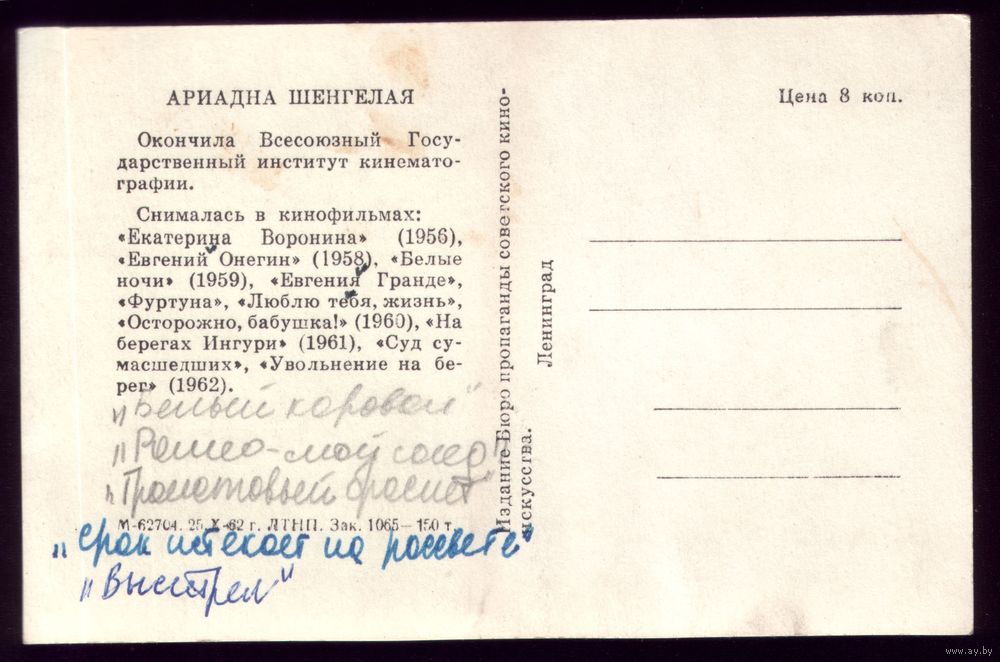 АРИАДНА ШЕНГЕЛАЯ
Окончила Всесоюзный Госу-
дарственный институт кинемато-
графии.
Снималась в кинофильмах:
«Екатерина Воронина» (1956),
«Евгений Онегин» (1958), «Белые
ночи» (1959), «Евгения Гранде»,
«Фуртуна», «Люблю тебя, жизнь»,
«Осторожно, бабушка!» (1960), «На
берегах Ингури» (1961), «Суд су-
масшедших», «Увольнение на бе-
рег» (1962).
„Белый каравай"
„Ромео-мой сосед"
„Гранатовый браслет"
М-62704. 25 X-62 г. ЛТНП. Зак. 1065—150 т.
„Срок истекает на рассвете"
„Выстрел"
Издание Бюро пропаганды советского кино-
искусства.
Ленинград
Цена 8 коп.
www.ay.by